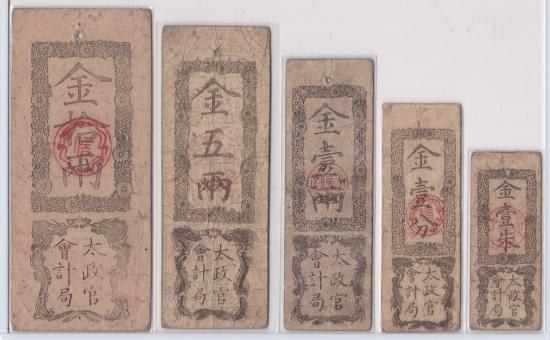 金拾兩
太政官
會計局
金五兩
太政官
會計局
金壹兩
太政官
會計局
金壹分
太政官
會計局
金壹朱
太政官
會計局